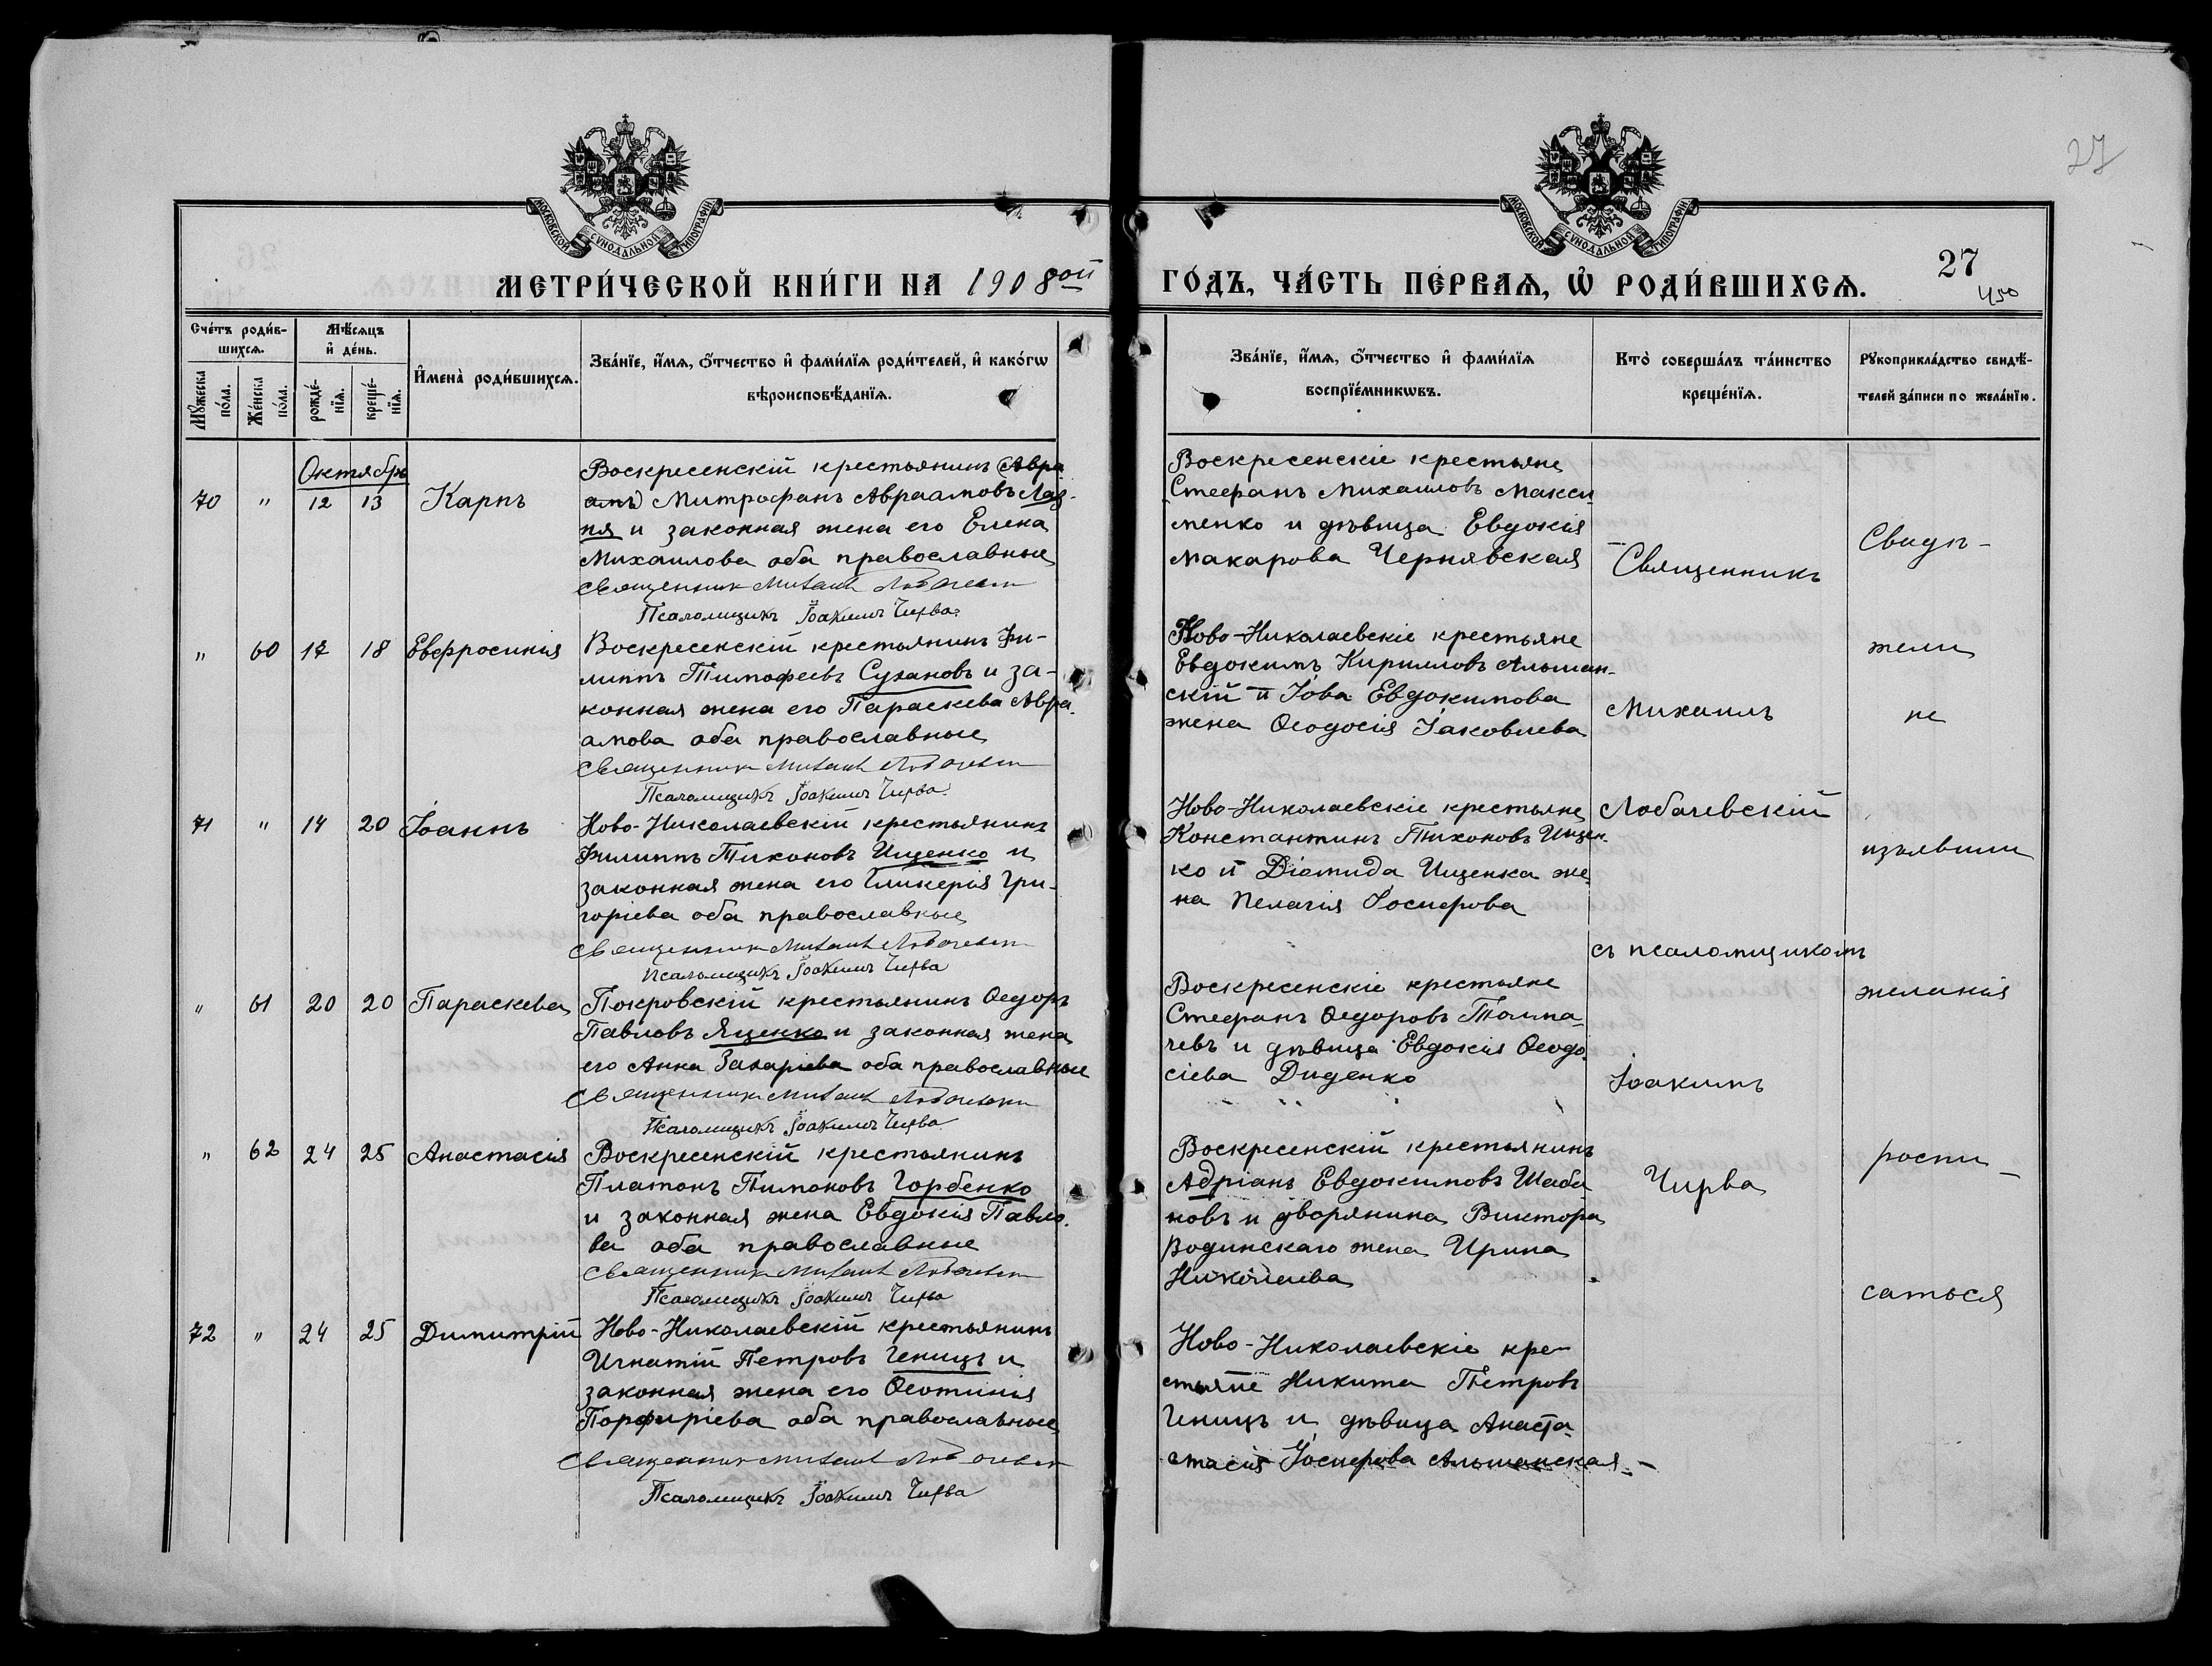 27
МОСКОВСКОЙ СѴНОДАЛЬНОЙ ТИПОГРАФІИ
МОСКОВСКОЙ СѴНОДАЛЬНОЙ ТИПОГРАФІИ
МЕТРИ́ЧЕСКОЙ КНИ́ГИ НА 1908ой ГО́ДЪ, ЧА́СТЬ ПЕ́РВАѦ, Ѽ РОДИ́ВШИХСѦ.
27
450
Сче́тъ роди́в-
шихсѧ.
Мѣ́сѧцъ
и҆ де́нь.
Мꙋ́жеска
по́ла.
Же́нска
по́ла.
рожде́-
нїѧ.
креще́-
нїѧ.
И҆мена̀ роди́вшихсѧ.
Зва́нїе, и҆́мѧ, ѻ҆́тчество и҆ фами́лїѧ роди́телей, и҆ како́гѡ
вѣроисповѣ́данїѧ.
Зва́нїе, и҆́мѧ, ѻ҆́тчество и҆ фами́лїѧ
воспрїе́мникѡвъ.
Кто̀ соверша́лъ та́инство
креще́нїѧ.
Рꙋкоприкла́дство свидѣ́-
телей за́писи по жела́нїю.
Октябрь
70 " 12 13 Карпъ
Воскресенскій крестьянинъ (Авра
амъ) Митрофанъ Авраамовъ Лаз-
ня и законная жена его Елена
Михаилова оба православные
Священник Михаил Лобачевск
Псаломщикъ Іоакимъ Чирва
Воскресенскіе крестьяне
Стефанъ Михаиловъ Макси-
менко и дѣвица Евдокія
Макарова Чернявская
" 60 17 18 Евфросинія
Воскресенскій крестьянинъ Фи-
липпъ Тимофеевъ Сухановъ и за-
конная жена его Параскева Авра-
амова оба православные
Священник Михаил Лобачевск
Псаломщикъ Іоакимъ Чирва
Ново-Николаевскіе крестьяне
Евдокимъ Кирилловъ Альшан-
скій и Іова Евдокимова
жена Ѳеодосія Іаковлева
71 " 14 20 Іоаннъ
Ново-Николаевскій крестьянинъ
Филиппъ Тихоновъ Ищенко и
законная жена его Гликерія Гри-
горіева оба православные
Священник Михаил Лобачевск
Псаломщикъ Іоакимъ Чирва
Ново-Николаевскіе крестьяне
Константинъ Тихоновъ Ищен-
ко и Діомида Ищенка же
на Пелагія Іосифова
" 61 20 20 Параскева
Покровскій крестьянинъ Ѳедоръ
Павловъ Яценко и законная жена
его Анна Захаріева оба православные
Священник Михаил Лобачевск
Псаломщикъ Іоакимъ Чирва
Воскресенскіе крестьяне
Стефанъ Ѳедоровъ Толма-
чевъ и дѣвица Евдокія Ѳеодо-
сіева Диденко
" 62 24 25 Анастасія
Воскресенскій крестьянинъ
Платонъ Тимоновъ Горбенко
и законная жена Евдокія Павло-
ва оба православные
Священник Михаил Лобачевск
Псаломщикъ Іоакимъ Чирва
Воскресенскій крестьянинъ
Адріанъ Евдокимовъ Шаба
новъ и дворянина Виктора
Водинскаго жена Ирина
Николаева
72 " 24 25 Димитрій
Ново-Николаевскій крестьянинъ
Игнатій Петровъ Геницъ и
законная жена его Ѳеотинія
Порфиріева оба православные
Священник Михаил Лобачевск
Псаломщикъ Іоакимъ Чирва
Ново-Николаевскіе кре-
стьяне Никита Петровъ
Геницъ и дѣвица Анаста-
стасія Іосифова Альшанская
Священникъ
Михаилъ
Лобачевскій
съ псаломщикомъ
Іоакимъ
Чирва
Свидѣ-
тели
не
изъявили
желанія
роспи-
саться